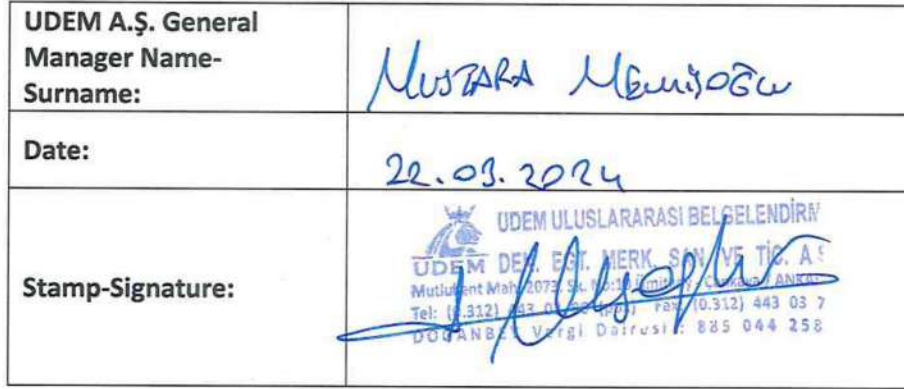 UDEM A.Ş. General
Manager Name-
Surname:
MUSTAFA MEMİŞOĞLU
Date:
22.03.2024
Stamp-Signature:
UDEM ULUSLARARASI BELGELENDİRM
UDEM DEN. EĞT. MERK. SAN. VE TİC. A.Ş
Mutlukent Mah. 2073. Sk.
Tel: (0.312) 443 Fax: (0.312) 443 03 7
DOĞANBEY Vergi Dairesi: 885 044 258